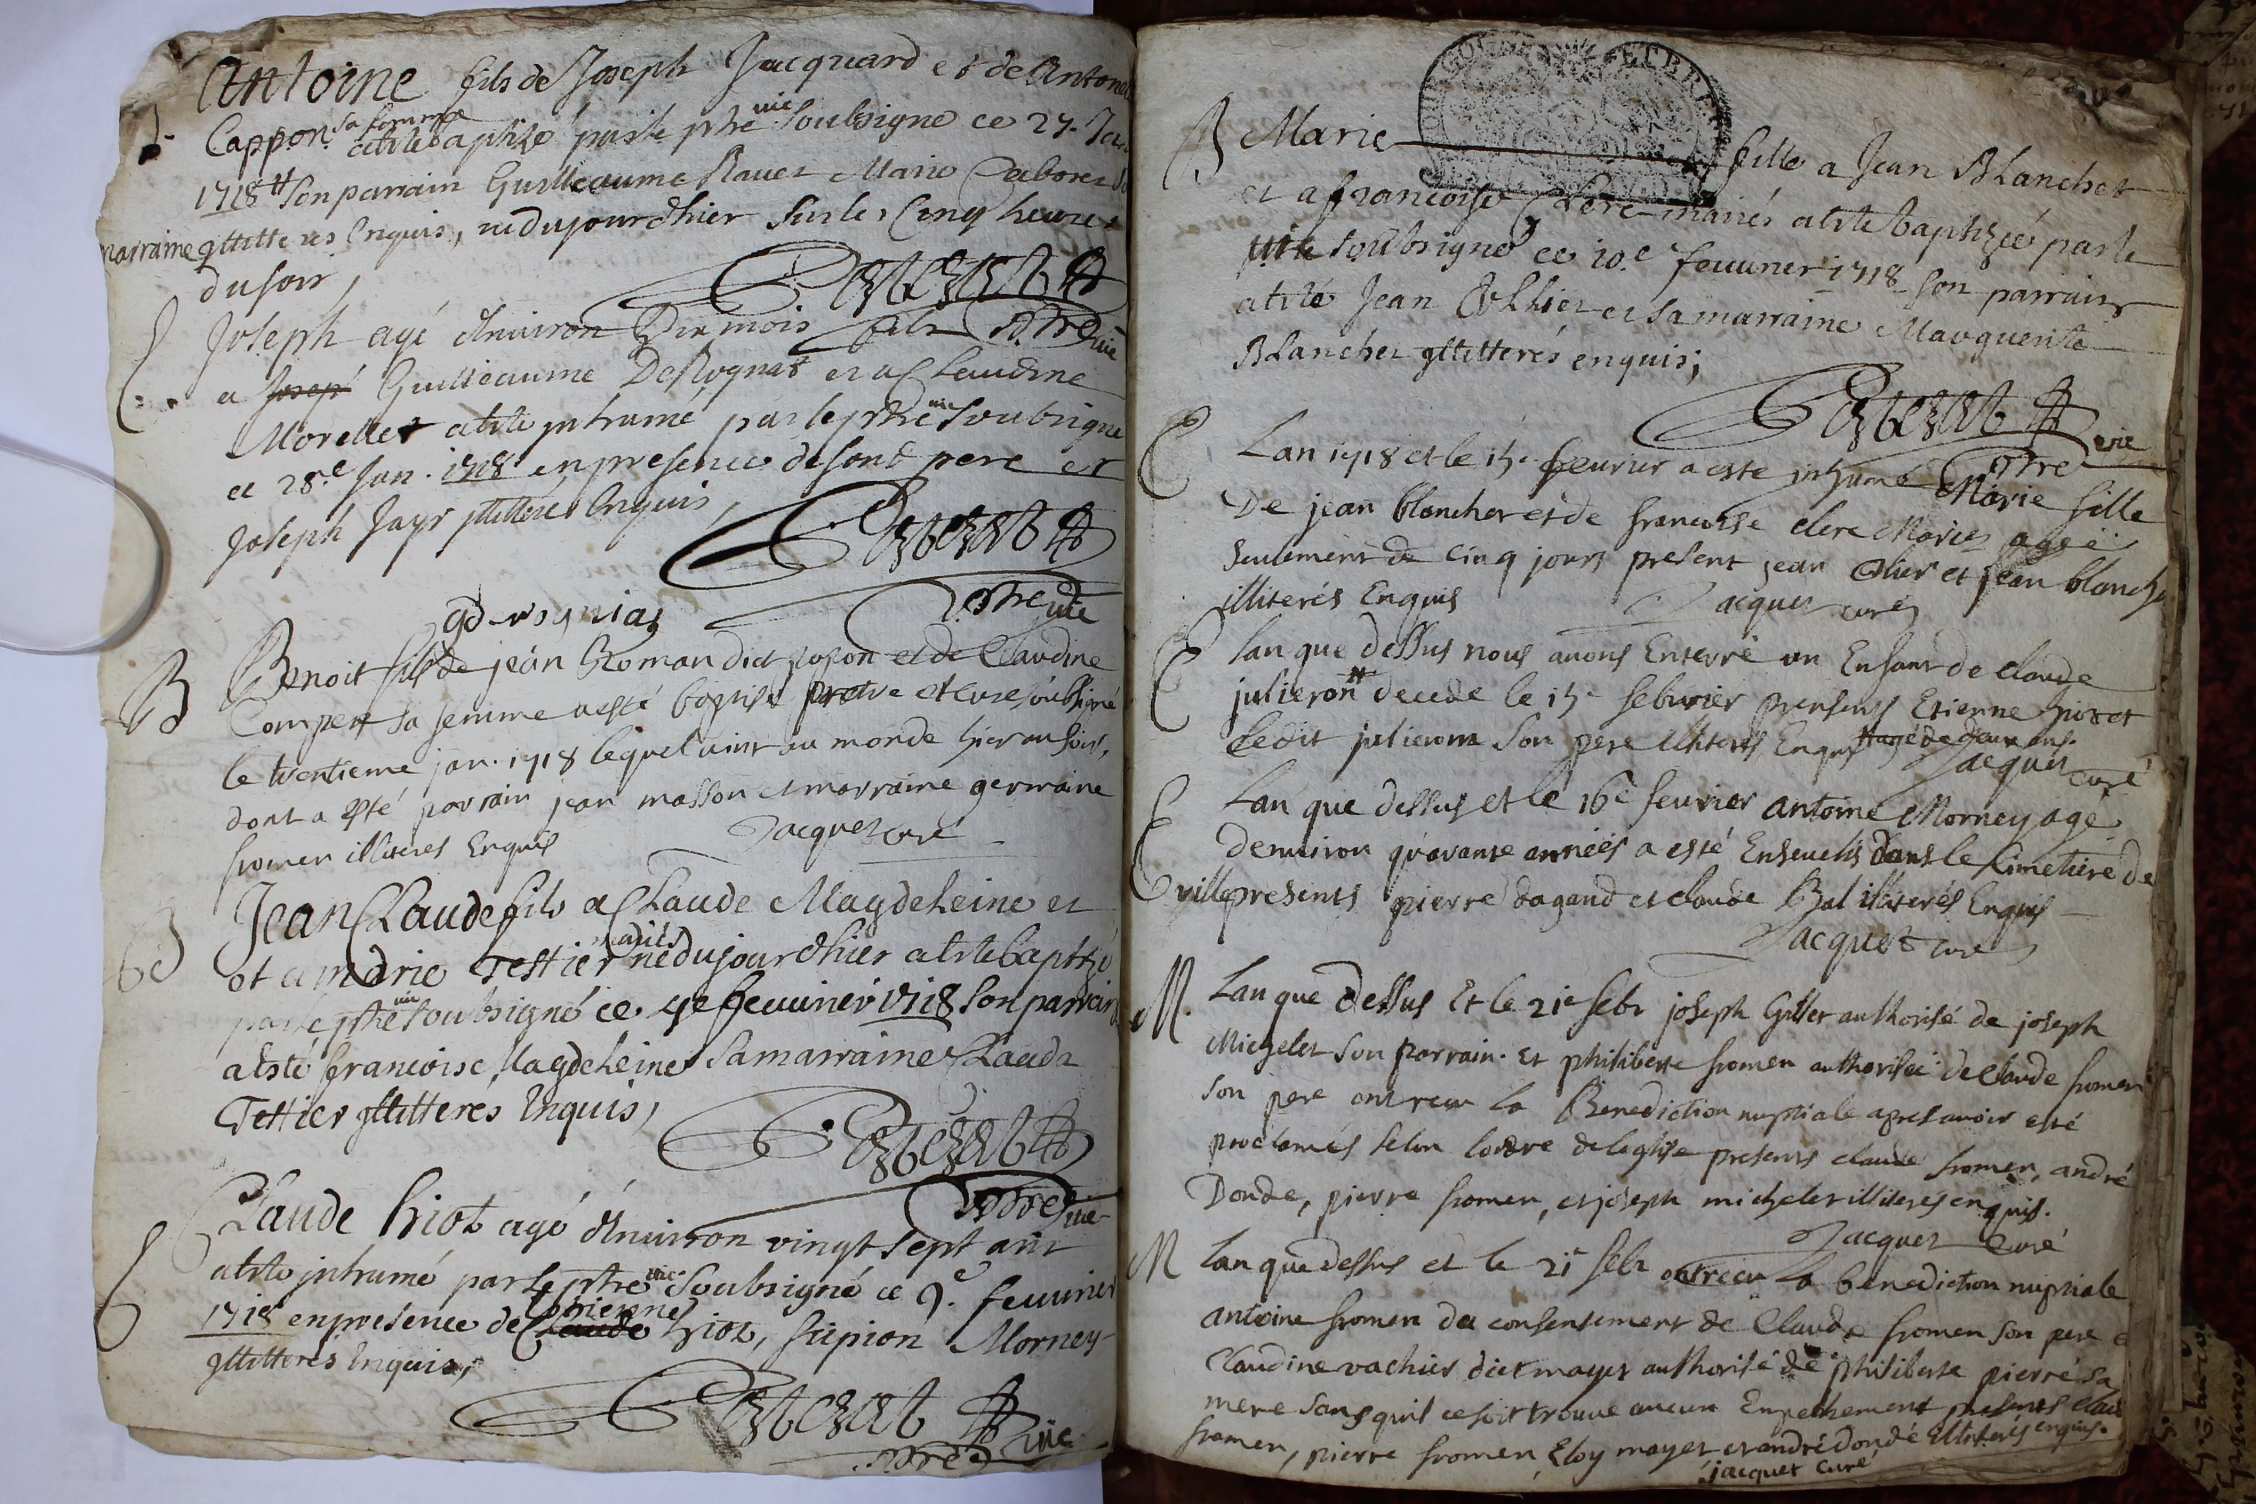 Antoine fils de Joseph Jacquard et de Antoine
Cappon sa femme a esté baptizé par le ptre vic soubsigné ce 27. Jan
1718 son parrain Guilleaume Ravet Marie Laboret sa
marraine illitteres enquis, né du jour d'hier sur les cinq heures
du soir,
ptre vic
Joseph agé d'environ dix mois fils
a Josep Guilleaume Desvognat et a Claudine
Morellet a esté inhumé par le ptre vic soubsigné
ce 28.e Jan. 1718 en presence de son d pere et
Joseph Jayr illitterés enquis,
ptre vic
B Benoit fils de jean Roman dict popon et de Claudine
Comper sa femme a esté baptisé pretre et cure soubsigné
le trentieme jan. 1718 lequel vint au monde hier au soir,
dont a esté parrain jean masson et marraine germaine
fromen illiteres Enquis Jacquet curé
Jean Claude fils a Claude Magdeleine et
et a marie Testier mariés né du jour d'hier a esté baptizé
par le ptre vic soubsigné ce 9e fevvrier 1718 son parrain
a esté françoise Magdeleine sa marraine Clauda
Testier illitteres enquis,
ptre vic
Claude hiot agé d'environ vingt sept ans
a esté inhumé par le ptre vic soubsigné ce 9.e fevvrier
1718 en presence de Claude Estienne hiot, scipion Morney
illitteres enquis,
ptre vic
B Marie fille a Jean Blanchet
et a francoise Clere mariés a esté baptizée par le
vic soubsigné ce 10.e fevvrier 1718 son parrain
a esté Jean Collier et sa marraine Marguerite
Blanchet illitterés enquis;
ptre vic
Lan 1718 et le 15e feuvrier a esté inhumé Marie fille
De jean blanchet et de francoise clere Mariés agée
seulement de cinq jours present jean Olier et jean blanche
illiterés Enquis Jacquet curé
lan que dessus nous avons Enterré un Enfant de claude
julieron decede le 15e februrier presents Etienne hiot et
ledit julieron son pere illiterés Enquis agé de deux ans.
Jacquet curé
Lan que dessus et le 16e fevrier antoine Morney agé
denviron quarante années a esté Ensevelis dans le Cimetiere de
ville presents pierre dagand et claude Bal illiterés Enquis
Jacquet curé
M. Lan que dessus Et le 21e febr joseph Gillet authorisé de joseph
Michelet son parrain. Et philiberte fromen authorisée de Claude fromen
son pere ont receu la Benediction nuptiale apres avoir esté
proclamés selon lordre de leglise presents claude fromen, andré
Donde, pierre fromen, et joseph michelet illiteres enquis.
Jacquet Curé
M lan que dessus et le 21e febr ont receu la benediction nuptiale
antoine fromen du consentement de Claude fromen son pere e
Claudine vachier dict mayet authorisé de philiberte pierre sa
mere sans quil ce soit trouve aucun Enpechement presents Clau
fromen, pierre fromen, Eloy mayet et andré donde illiterés enquis.
jacquet Curé